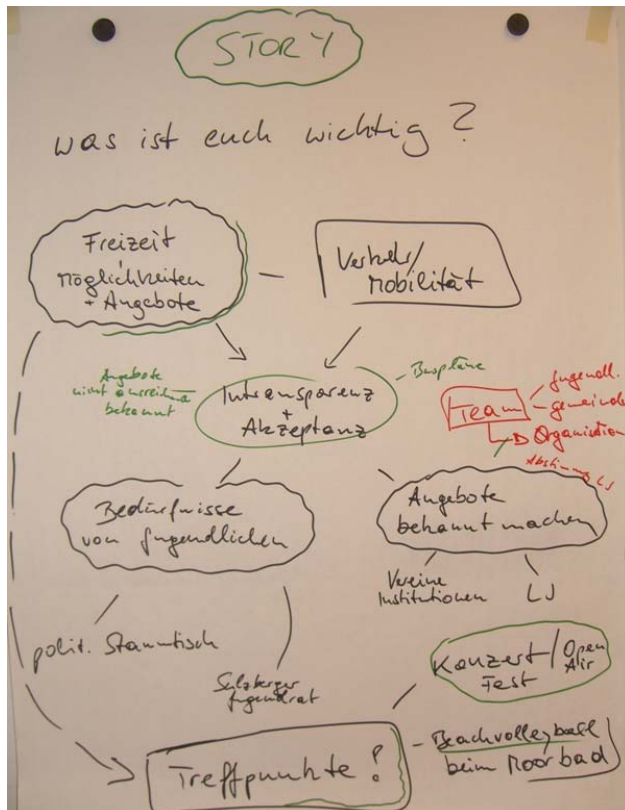 STORY
was ist euch wichtig?
Freizeit
möglichkeiten
+ Angebote
Verkehr/
Mobilität
Angebote
nicht ausreichend
bekannt
Intransparenz
+
Akzeptanz
- Buspläne
Team
Jugendl.
gemeinde
Organisation
Abstimmung LJ
Bedürfnisse
von Jugendlichen
Angebote
bekannt machen
Vereine
Institutionen
LJ
polit. Stammtisch
Sulzberger
Jugendrat
Konzert/Open
Fest Air
Treffpunkte!
- Beachvolleyball
beim Moorbad